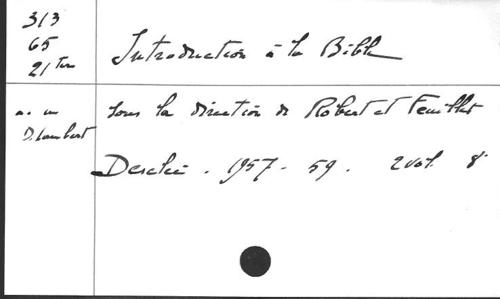 313
65
21 ter
Introduction à la Bible
sous la direction de Robert et Feuillet
D. Lambert
Desclée . 1957 - 59 . 2 vol. 8°